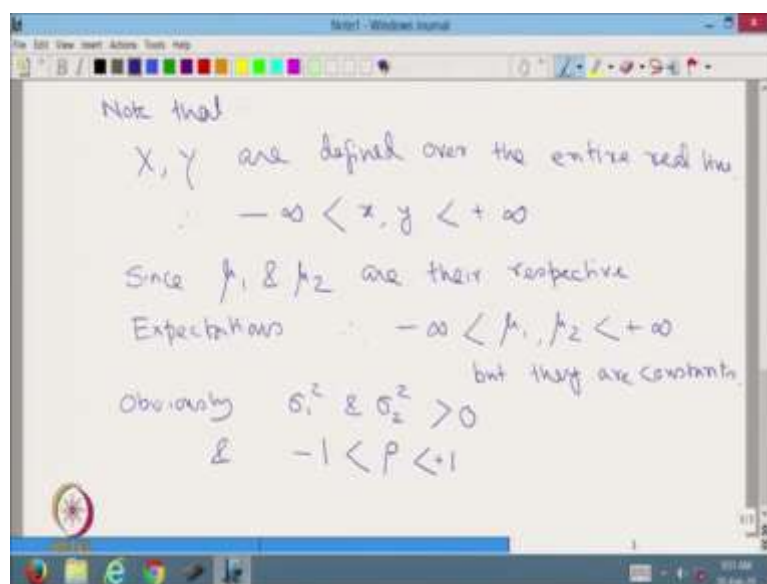 Note1 - Windows Journal
File Edit View Insert Actions Tools Help
Note that
X, Y are defined over the entire real line
∴ -∞ < x, y < +∞
Since μ₁ & μ₂ are their respective
Expectations ∴ -∞ < μ₁, μ₂ < +∞
but they are constants.
Obviously σ₁² & σ₂² > 0
& -1 < ρ < +1